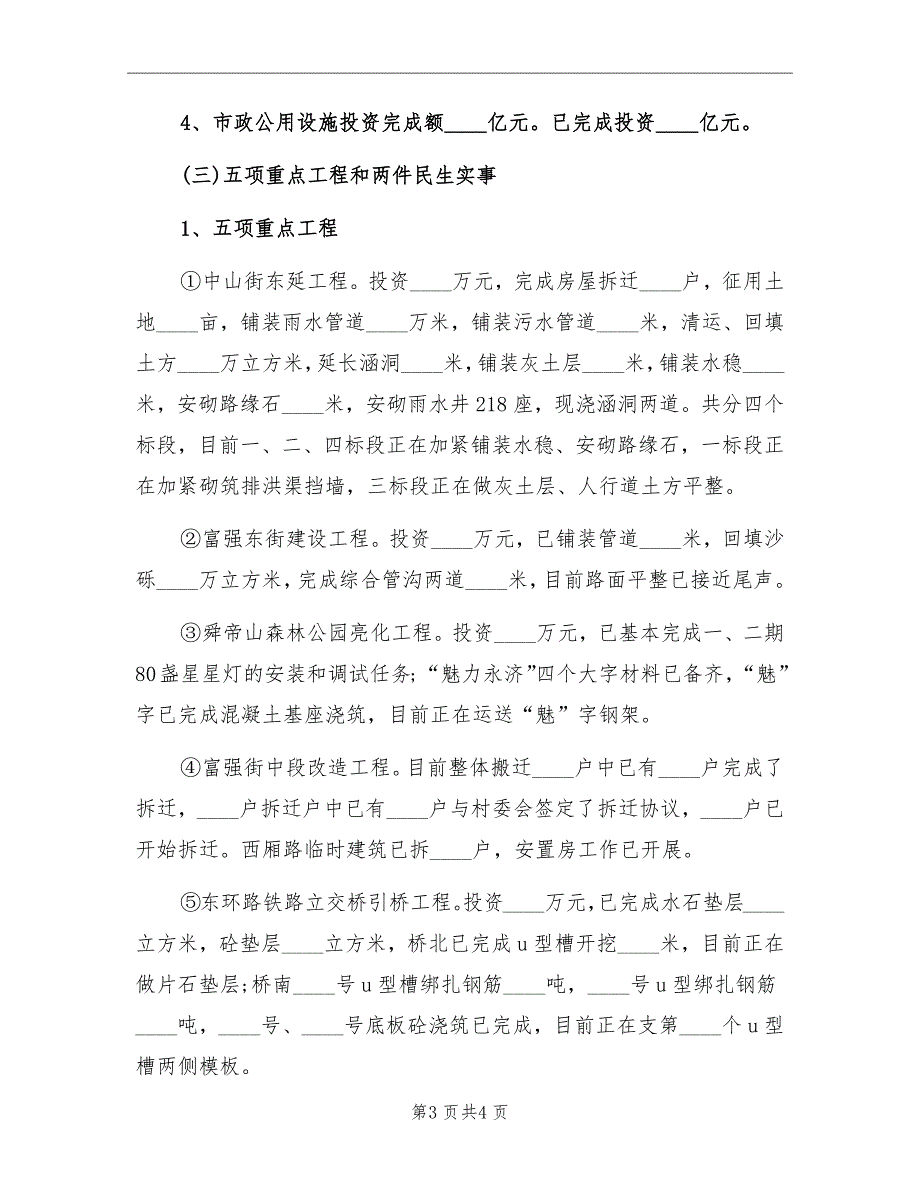 4、市政公用设施投资完成额____亿元。已完成投资____亿元。
(三)五项重点工程和两件民生实事
1、五项重点工程
①中山街东延工程。投资____万元，完成房屋拆迁____户，征用土
地____亩，铺装雨水管道____万米，铺装污水管道____米，清运、回填
土方____万立方米，延长涵洞____米，铺装灰土层____米，铺装水稳____
米，安砌路缘石____米，安砌雨水井 218 座，现浇涵洞两道。共分四个
标段，目前一、二、四标段正在加紧铺装水稳、安砌路缘石，一标段正
在加紧砌筑排洪渠挡墙，三标段正在做灰土层、人行道土方平整。
②富强东街建设工程。投资____万元，已铺装管道____米，回填沙
砾____万立方米，完成综合管沟两道____米，目前路面平整已接近尾声。
③舜帝山森林公园亮化工程。投资____万元，已基本完成一、二期
80 盏星星灯的安装和调试任务;“魅力永济”四个大字材料已备齐，“魅”
字已完成混凝土基座浇筑，目前正在运送“魅”字钢架。
④富强街中段改造工程。目前整体搬迁____户中已有____户完成了
拆迁，____户拆迁户中已有____户与村委会签定了拆迁协议，____户已
开始拆迁。西厢路临时建筑已拆____户，安置房工作已开展。
⑤东环路铁路立交桥引桥工程。投资____万元，已完成水石垫层____
立方米，砼垫层____立方米，桥北已完成 u 型槽开挖____米，目前正在
做片石垫层;桥南____号 u 型槽绑扎钢筋____吨，____号 u 型绑扎钢筋
____吨，____号、____号底板砼浇筑已完成，目前正在支第____个 u 型
槽两侧模板。
第 3 页 共 4 页